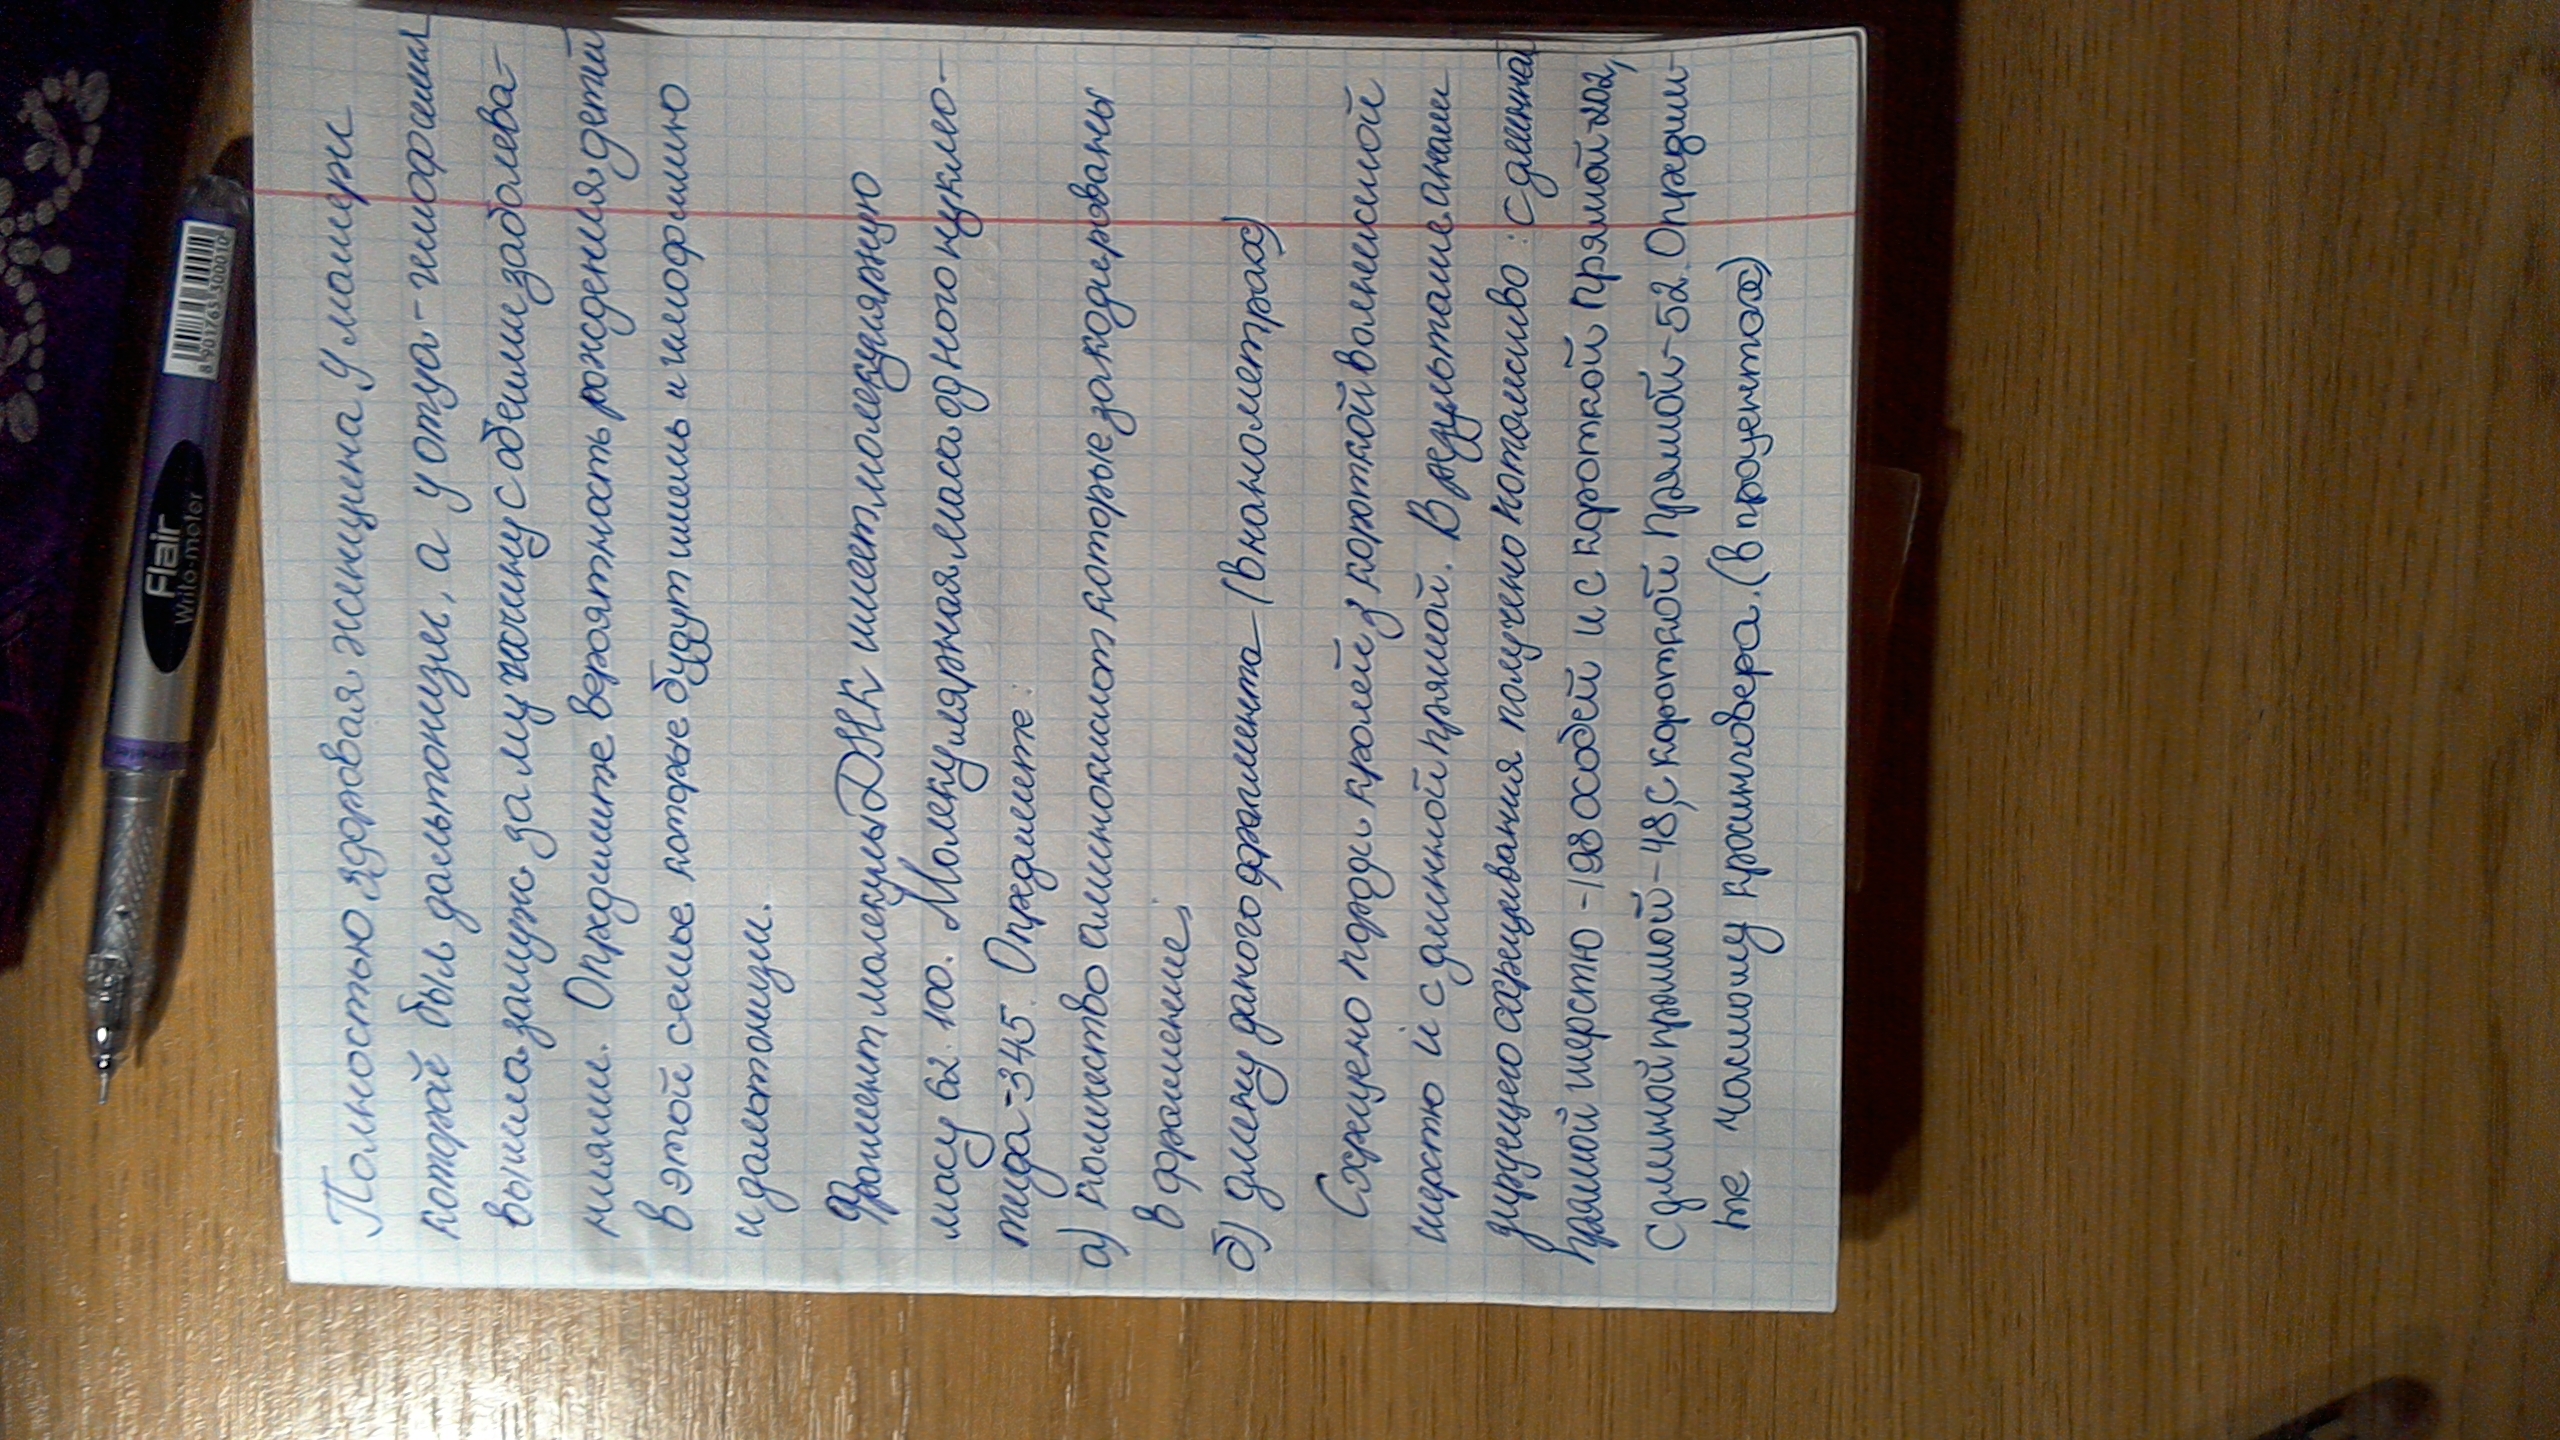 Полностью здоровая женщина у матери
которой был дальтонизм, а у отца - гемофилия
вышла замуж за мужчину с обеими заболева-
ниями. Определите вероятность рождения детей
в этой семье которые будут иметь и гемофилию
и дальтонизм.
Фрагмент молекулы ДНК имеет молекулярную
масу 62.100. Молекулярная маса одного нуклео-
тида=345. Определите:
а) количество аминокислот которые закодированы
в фрагменте;
б) длинну даного фрагмента (в нанометрах)
Скрещено породы кролей з короткой волнистой
шерстю и с длинной прямой. В результате анали
зирущего скрещивания получено потомство: с длинной
прямой шерстю - 198 особей и с короткой прямой 202,
с длинной прямой - 48, с короткой прямой - 52. Определи-
те частоту кроинговера. (в процентах)
Flair
Writo-meter
8 901765 300010